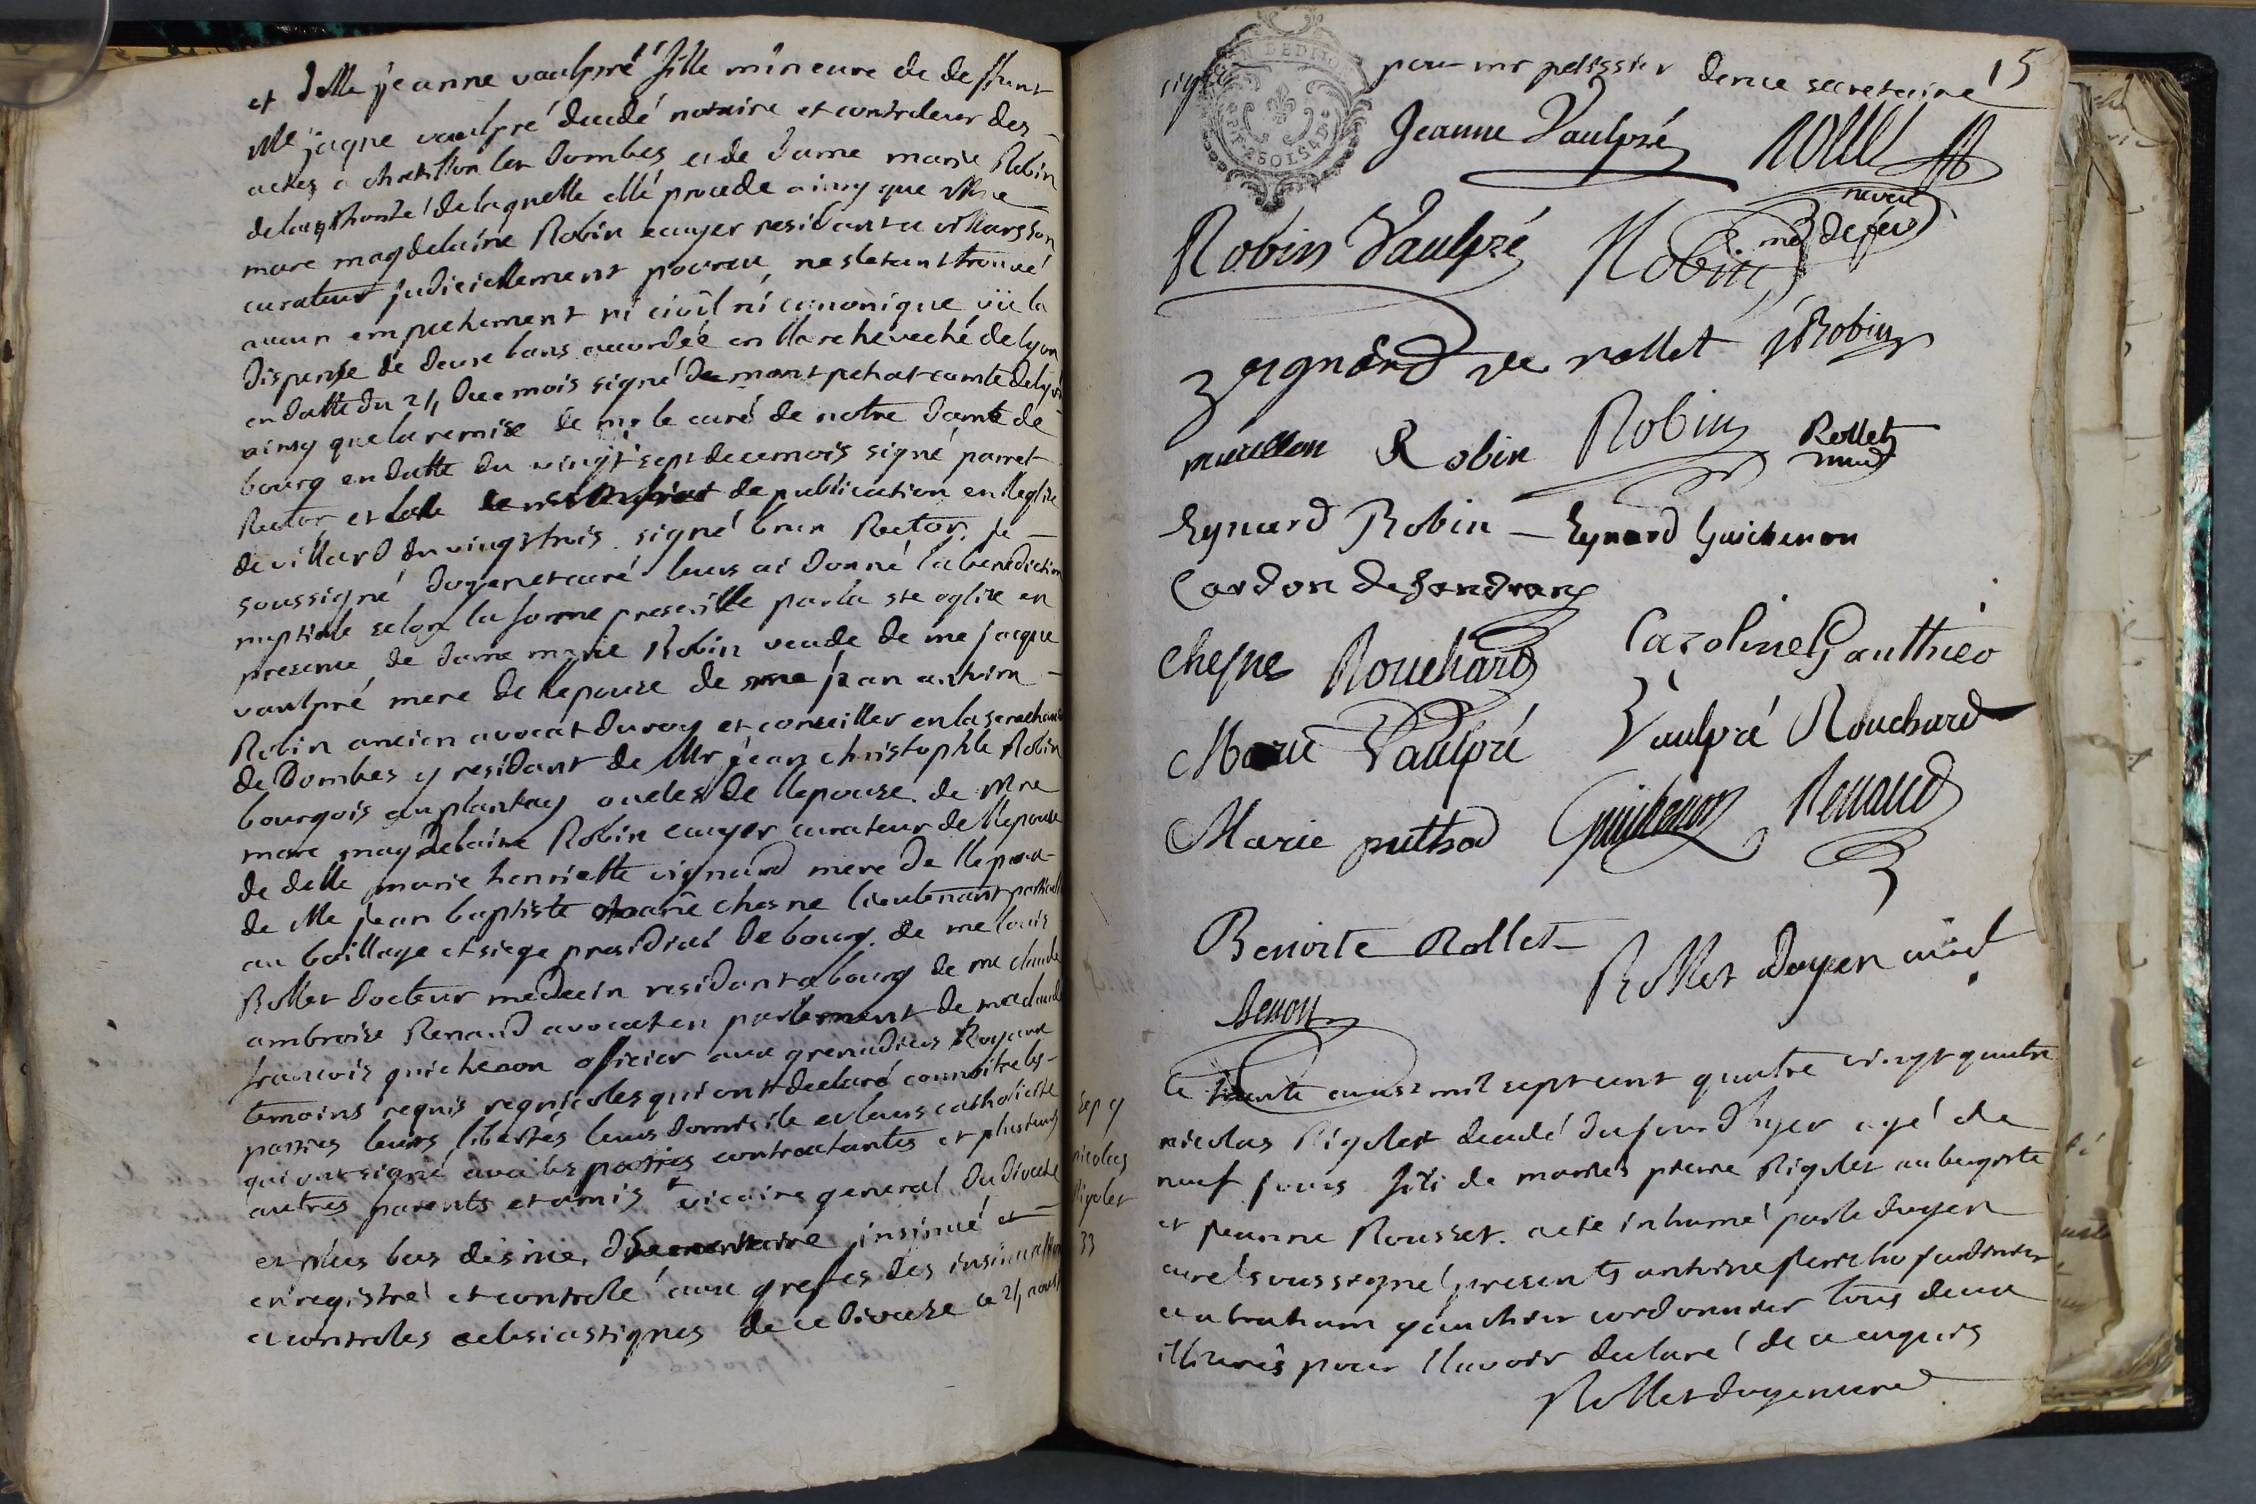 et delle jeanne vaulpré fille mineure de deffunt
Me jaque vaulpré décédé notaire et controleur des
actes a chatillon les dombes et de dame marie Robin
de lauthorité de laquelle elle procede ainsy que Mre
marc magdelaine Robin ecuyer residant a villars son
curateur judiciellement pourvu, ne s'etant trouvé
aucun empechement ni civil ni canonique vüe la
dispense de deux bans accordée en l'archeveché de lyon
en datte du 24 du mois signé de montpehat comte de lyon
ainsy que la remise de mr le curé de notre dame de
bourg en datte du vingt sept de ce mois signé parret
Rector et celle de publication en l'eglise
de villard du vingt trois signé brun Rector. je
soussigné doyen et curé leurs ai donné la benediction
nuptiale selon la forme prescritte par la ste eglise en
presence de dame marie Robin veude de me jacque
vaulpré mere de l'epouse de me jean antoine
Robin ancien avocat du roy et conseiller en la senechaussée
de Dombes y residant de Mr jean christophle Robin
bourgois au plantay oncles de l'epouse. de Mre
marc magdelaine Robin ecuyer curateur de l'epouse
de delle marie henriette vignard mere de l'epoux
de Me jean baptiste marie chesne lieutenant particulier
au baillage et siege presidial de bourg. de me louis
Rollet docteur medecin residant a bourg de me claude
ambroise Renaud avocat en parlement de me claude
francois guichenon officier aux grenadiers Royaux
temoins requis regnicoles qui ont declaré connoitre les
parties leurs libertés leurs domicile et leurs catholicité
qui ont signé avec les parties contractantes et plusieurs
autres parents et amis + vicaire general du diocese
et plus bas insinué et
enregistré et controlé aux greffes des insinuations
et controles eclesiastiques de ce diocese ce 24 aoust
15
signé pour mr pelissier secretaire
GEN DEDIJON
PF 2SOLS4D
Jeanne Vaulpré Rollet
Robin Vaulpré Robin
neveu
vignard de rollet J Robin
marillon Robin Robin Rollet
Eynard Robin — Eynard Guichenon
Cardon de Sandrans
Chesne Rouchard Caroline Gauthier
Marie Vaulpré Vaulpré Rouchard
Marie puthod Guichenon Renaud
Benoite Rollet
Rollet doyen curé
Benon
Sep. 9
nicolas
Rigolet
33
le trente aoust mil sept cent quatre vingt quatre
nicolas Rigolet decedé du jour d'hyer agé de
neuf jours fils de pierre Rigolet aubergiste
et jeanne Rousset. a eté inhumé par le doyen
curé soussigné presents antoine jardinier
et abraham gauthier cordonnier tous deux
illitterés pour l'avoir declaré de ce enquis
Rollet doyen curé